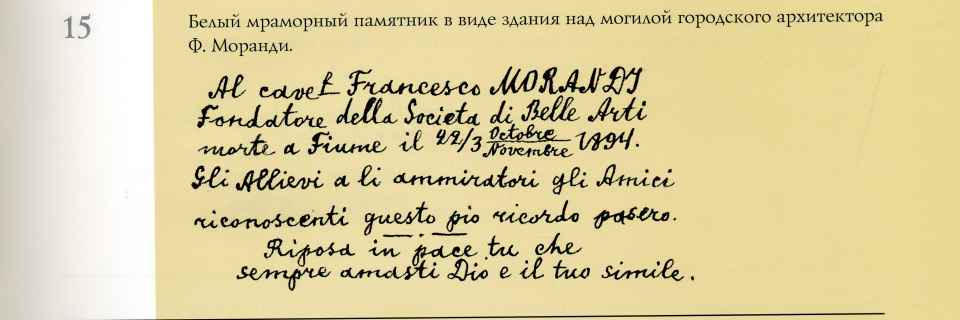 15
Белый мраморный памятник в виде здания над могилой городского архитектора
Ф. Моранди.
Al cavet Francesco MORANDI
Fondatore della Societa di Belle Arti
morte a Fiume il 22/3 Octobre/Novembre 1894.
Gli Allievi a li ammiratori gli Amici
riconoscenti questo pio ricordo posero.
Riposa in pace tu che
sempre amasti Dio e il tuo simile.